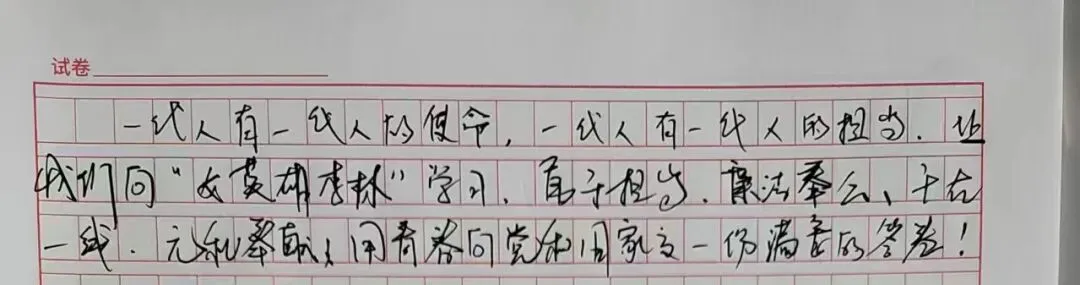 试卷
一代人有一代人的使命，一代人有一代人的担当。让
我们向“女英雄李林”学习，勇于担当、秉法奉公、干在
一线、无私奉献，用青春向党和国家交一份满意的答卷！